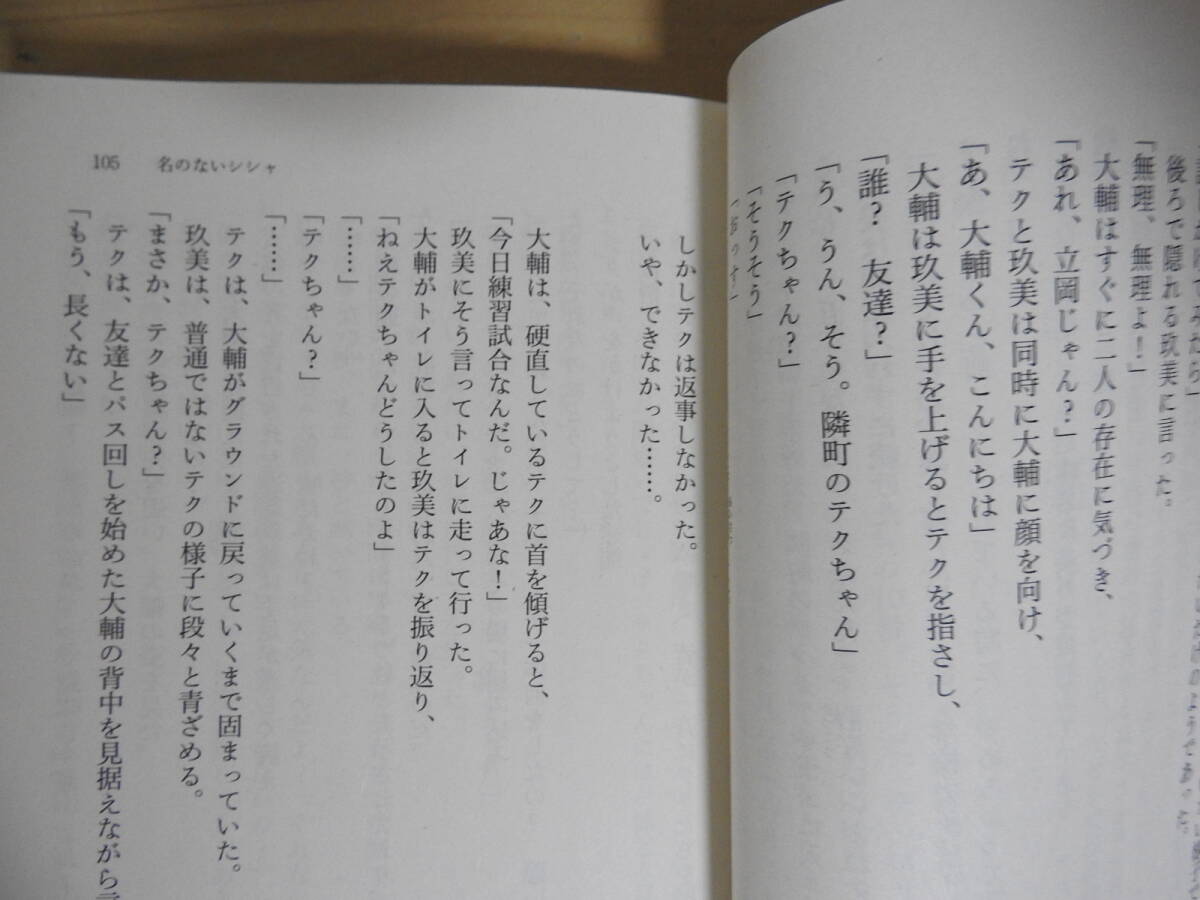 後ろで隠れる玖美に言った。
「無理、無理よ！」
大輔はすぐに二人の存在に気づき、
「あれ、立岡じゃん？」
テクと玖美は同時に大輔に顔を向け、
「あ、大輔くん、こんにちは」
大輔は玖美に手を上げるとテクを指さし、
「誰？　友達？」
「う、うん、そう。隣町のテクちゃん」
「テクちゃん？」
「そうそう」
「おっす」
しかしテクは返事しなかった。
いや、できなかった……。
大輔は、硬直しているテクに首を傾げると、
「今日練習試合なんだ。じゃあな！」
玖美にそう言ってトイレに走って行った。
大輔がトイレに入ると玖美はテクを振り返り、
「ねえテクちゃんどうしたのよ」
「……」
「テクちゃん？」
「……」
テクは、大輔がグラウンドに戻っていくまで固まっていた。
玖美は、普通ではないテクの様子に段々と青ざめる。
「まさか、テクちゃん？」
テクは、友達とパス回しを始めた大輔の背中を見据えながら
「もう、長くない」
105　名のないシシャ